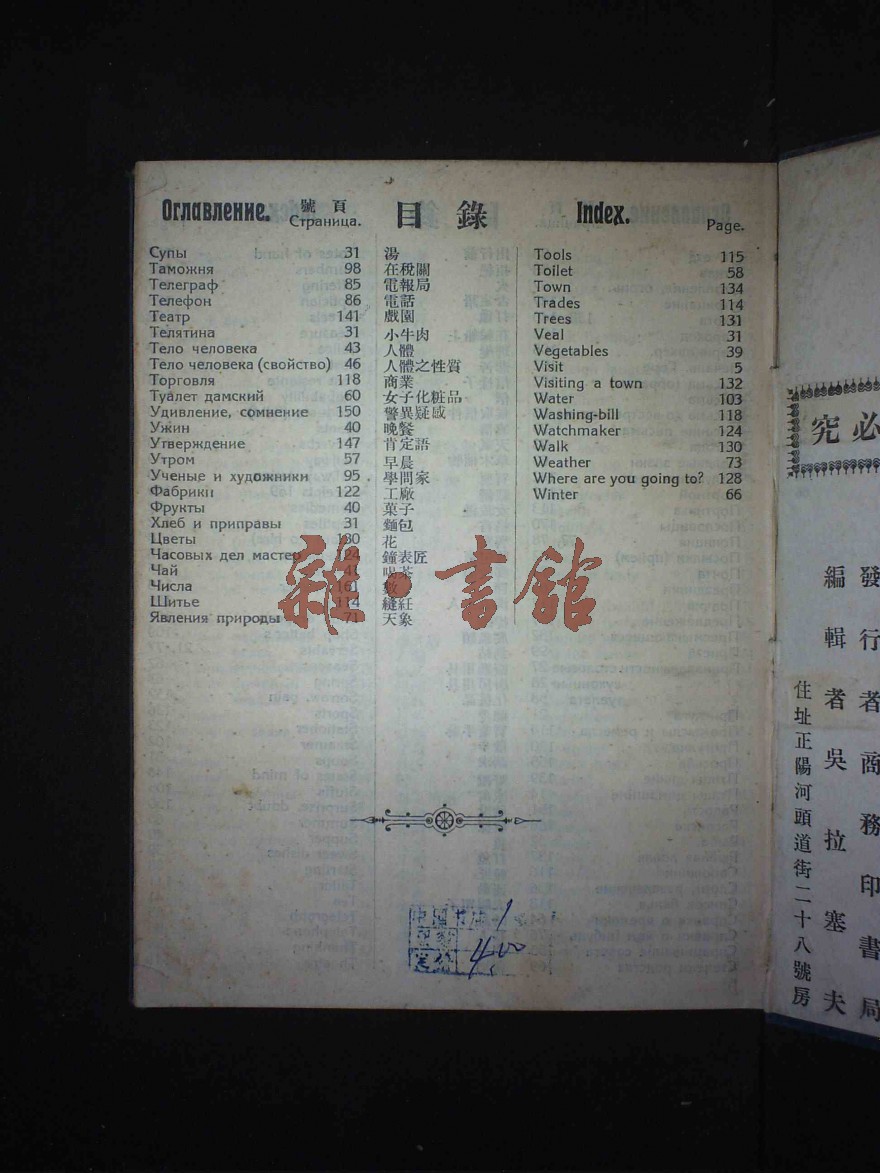 Оглавление. 號頁 目錄 Index.
Страница. Page.
Супы 31 湯 Tools 115
Таможня 98 在稅關 Toilet 58
Телеграф 85 電報局 Town 134
Телефон 86 電話 Trades 114
Театр 141 戲園 Trees 131
Телятина 31 小牛肉 Veal 31
Тело человека 43 人體 Vegetables 39
Тело человека (свойство) 46 人體之性質 Visit 5
Торговля 118 商業 Visiting a town 132
Туалет дамский 60 女子化粧品 Water 103
Удивление, сомнение 150 警異疑感 Washing-bill 118
Ужин 40 晚餐 Watchmaker 124
Утверждение 147 肯定語 Walk 130
Утром 57 早晨 Weather 73
Ученые и художники 95 學問家 Where are you going to? 128
Фабрики 122 工廠 Winter 66
Фрукты 40 菓子
Хлеб и приправы 31 麵包
Цветы 130 花
Часовых дел мастер 124 鐘表匠
Чай 41 喝茶
Числа 161 數
Шитье 114 縫紅
Явления природы 71 天象
雜·書館
4.00
必究
發行者商務印書局
編輯者吳拉塞夫
住址正陽河頭道街二十八號房